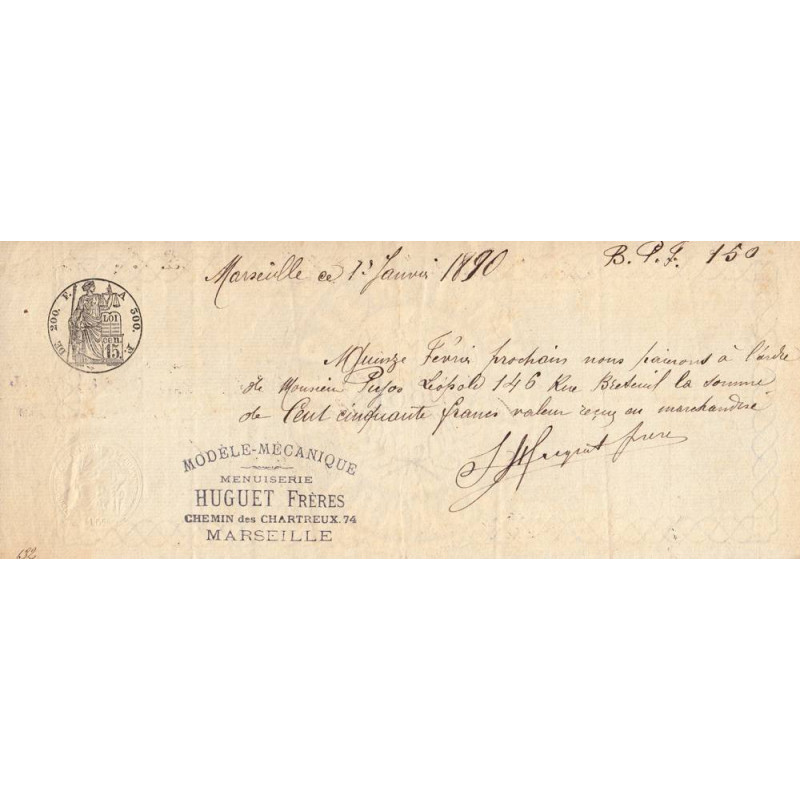 Marseille ce 1er Janvier 1890 B.P.F. 150
DE 200. F. A 500. F.
LOI
CEN.
15.
Quinze Février prochain nous paierons à l'ordre
de Monsieur Pujos Léopold 146 Rue Breteuil la somme
de Cent cinquante francs valeur reçu en marchandise
Huguet frère
MODÈLE-MÉCANIQUE
MENUISERIE
HUGUET FRÈRES
CHEMIN des CHARTREUX.74
MARSEILLE
652